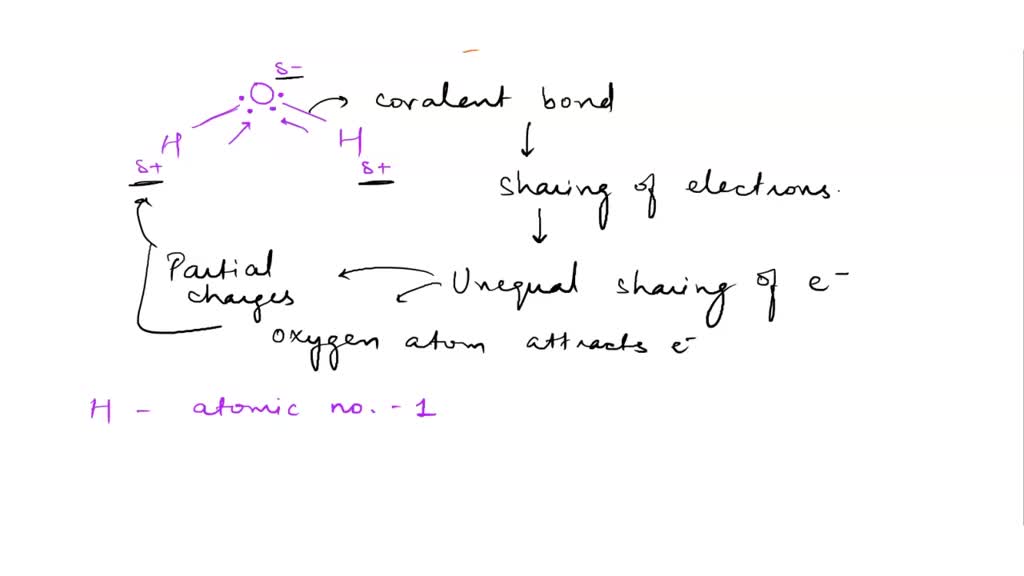 δ-
O
H
H
δ+
δ+
covalent bond
sharing of electrons.
Unequal sharing of e-
Partial
charges
oxygen atom attracts e-
H - atomic no. - 1